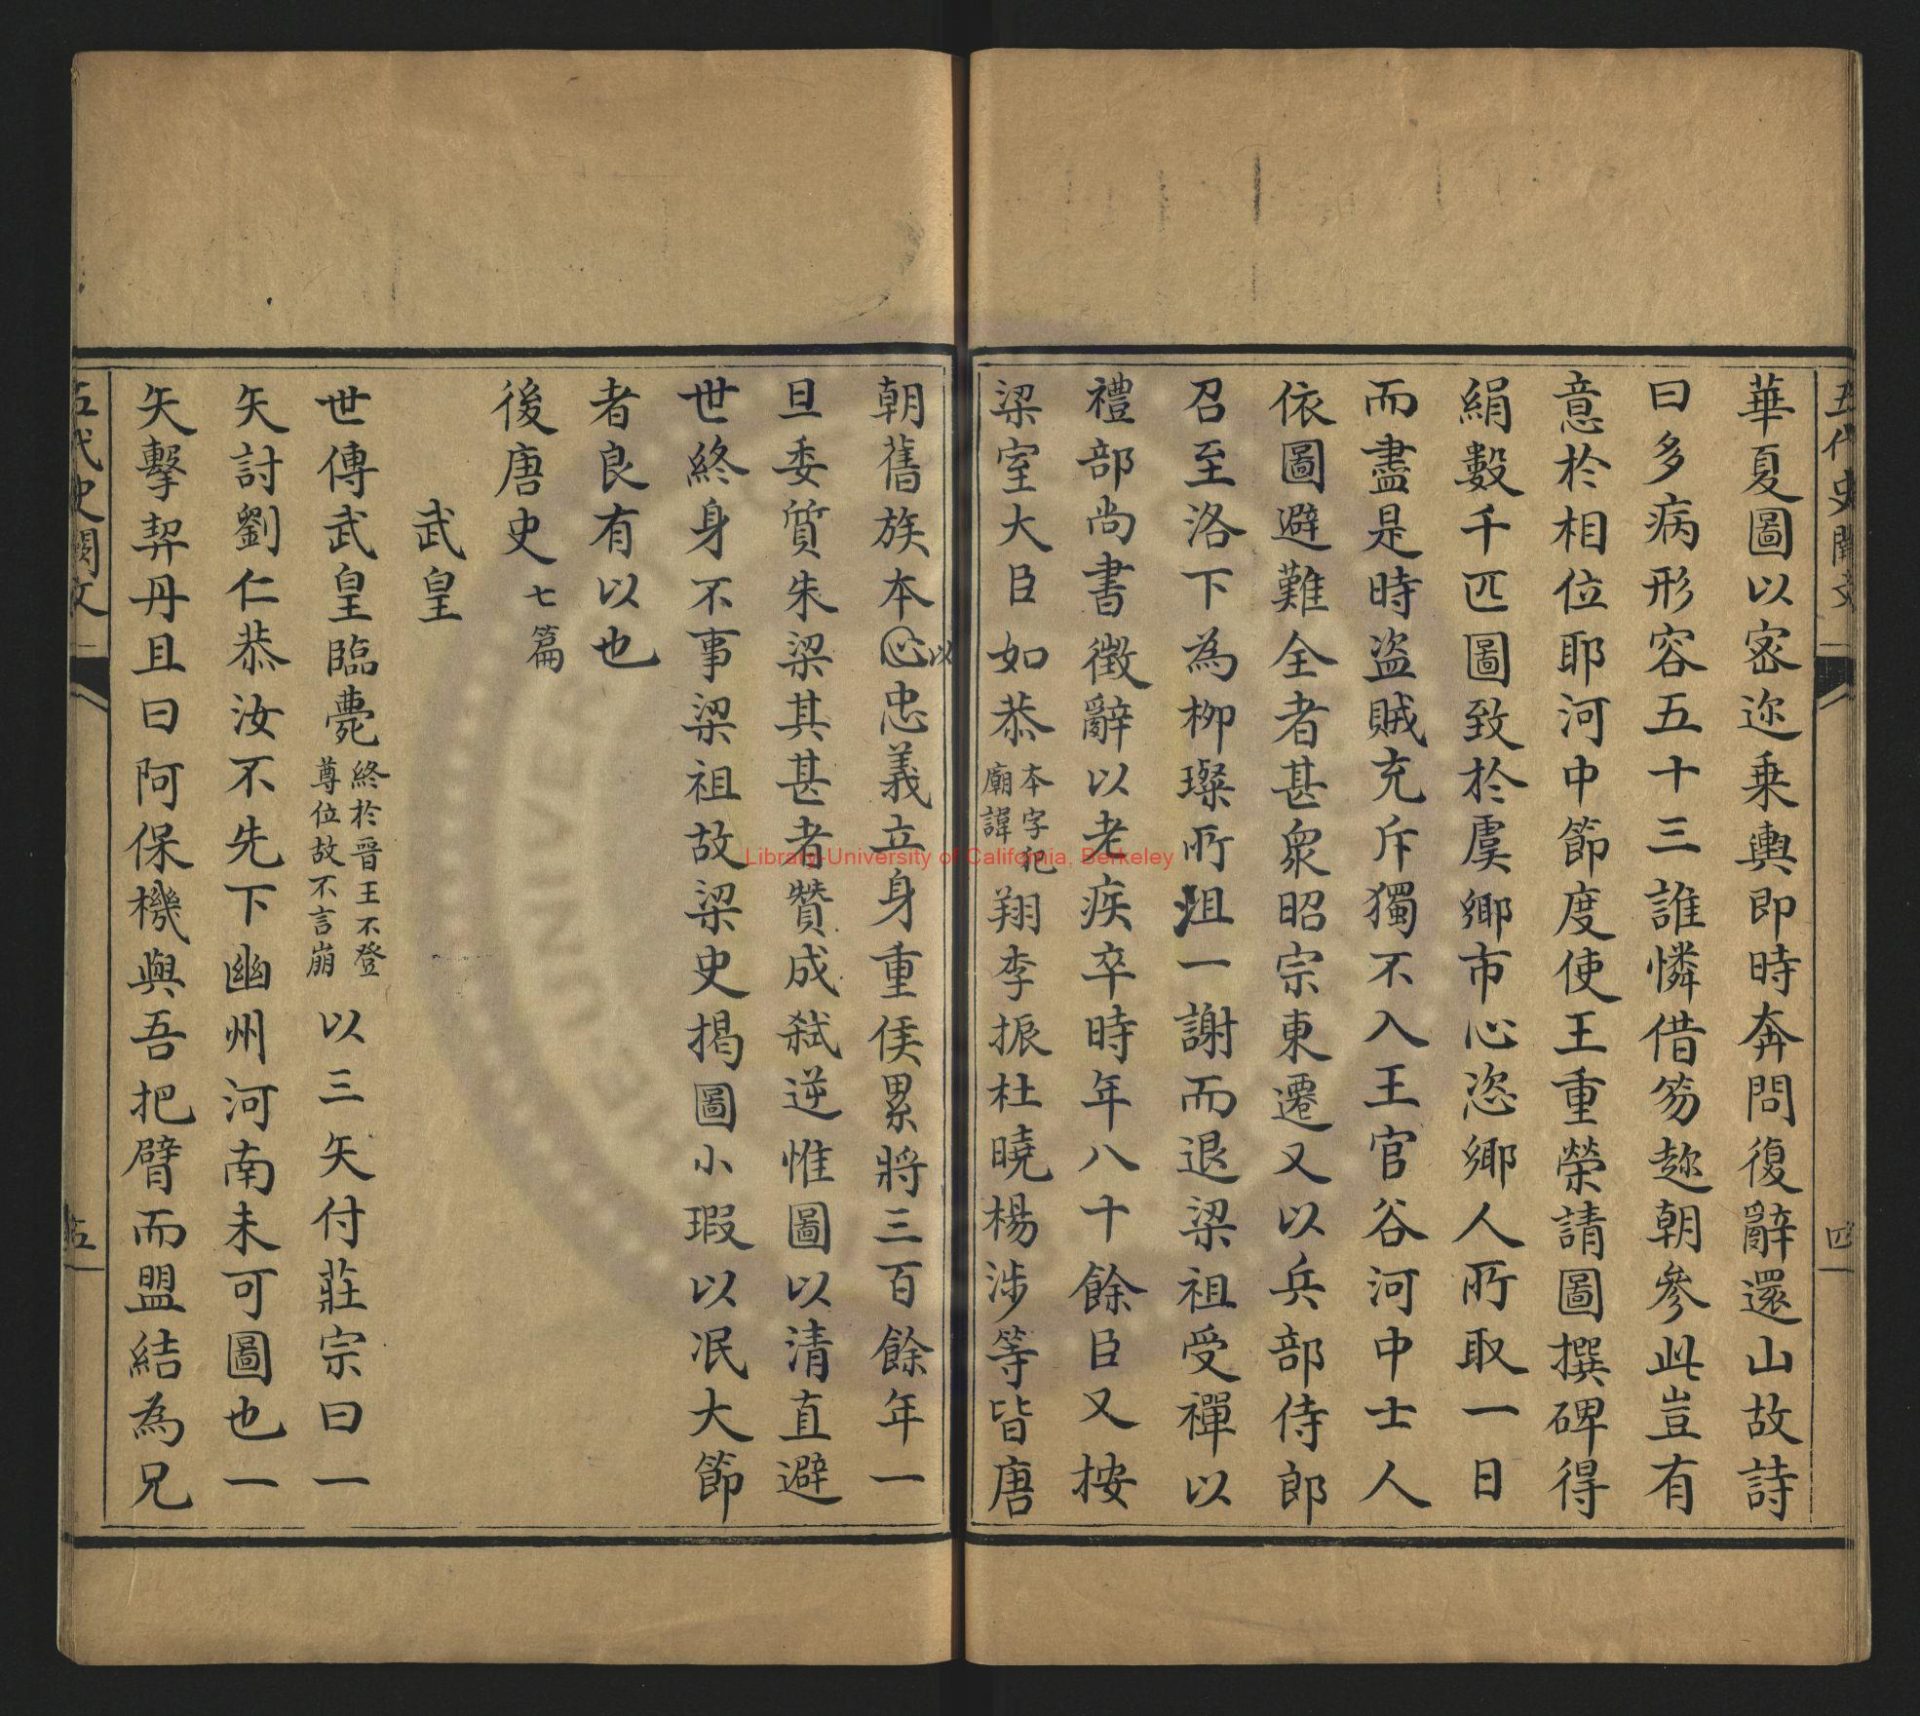 五代史闕文
四
華夏圖以密迩乗輿即時奔問復辭還山故詩
曰多病形容五十三誰憐借笏趂朝參此豈有
意於相位耶河中節度使王重榮請圖撰碑得
絹數千匹圖致於虞鄉市心恣鄉人所取一日
而盡是時盗賊充斥獨不入王官谷河中士人
依圖避難全者甚衆昭宗東遷又以兵部侍郎
召至洛下為柳璨所沮一謝而退梁祖受禪以
禮部尚書徵辭以老疾卒時年八十餘臣又按
梁室大臣如恭本字犯廟諱翔李振杜曉楊涉等皆唐
朝舊族本心以忠義立身重侯累將三百餘年一
旦委質朱梁其甚者贊成弑逆惟圖以清直避
世終身不事梁祖故梁史揭圖小瑕以泯大節
者良有以也
後唐史七篇
武皇
世傳武皇臨薨終於晉王不登尊位故不言崩以三矢付莊宗曰一
矢討劉仁恭汝不先下幽州河南未可圖也一
矢擊契丹且曰阿保機與吾把臂而盟結為兄
五代史闕文
五
Library-University of California, Berkeley